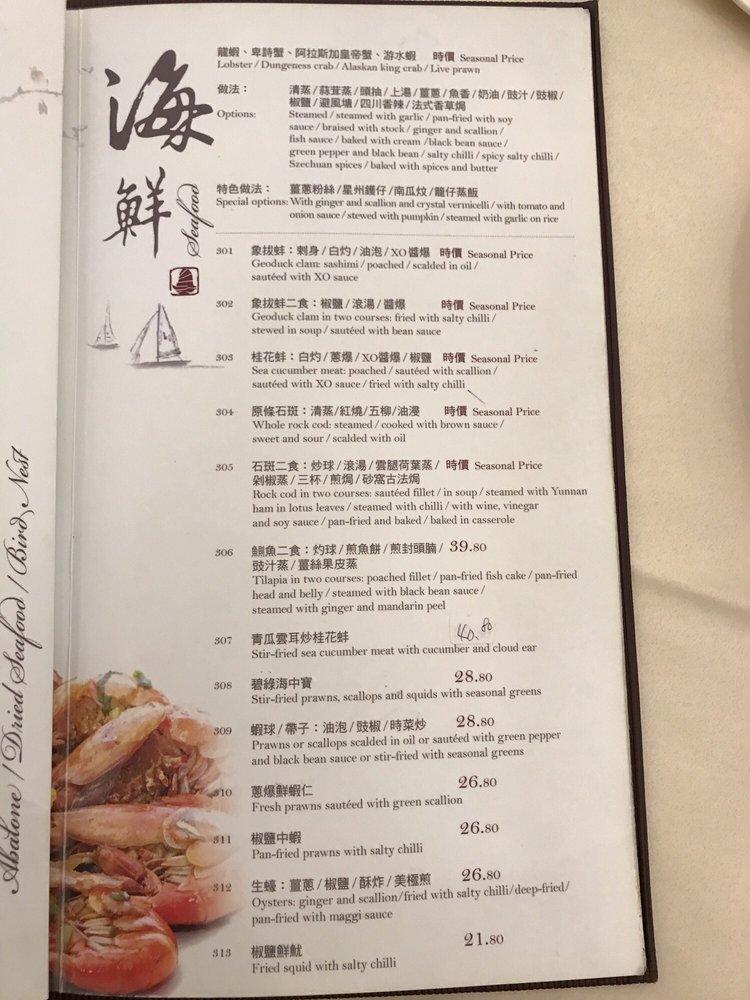 海
鮮
Seafood
Abalone / Dried Seafood / Bird Nest
龍蝦、卑詩蟹、阿拉斯加皇帝蟹、游水蝦 時價 Seasonal Price
Lobster / Dungeness crab / Alaskan king crab / Live prawn
做法： 清蒸/蒜茸蒸/頭抽/上湯/薑蔥/魚香/奶油/豉汁/豉椒/
椒鹽/避風塘/四川香辣/法式香草焗
Options: Steamed / steamed with garlic / pan-fried with soy
sauce / braised with stock / ginger and scallion /
fish sauce / baked with cream /black bean sauce /
green pepper and black bean / salty chilli / spicy salty chilli /
Szechuan spices / baked with spices and butter
特色做法： 薑蔥粉絲/星州鑊仔/南瓜炆/龍仔蒸飯
Special options: With ginger and scallion and crystal vermicelli / with tomato and
onion sauce / stewed with pumpkin / steamed with garlic on rice
301 象拔蚌：刺身/白灼/油泡/XO醬爆 時價 Seasonal Price
Geoduck clam: sashimi / poached / scalded in oil /
sautéed with XO sauce
302 象拔蚌二食：椒鹽/滾湯/醬爆 時價 Seasonal Price
Geoduck clam in two courses: fried with salty chilli /
stewed in soup / sautéed with bean sauce
303 桂花蚌：白灼/蔥爆/XO醬爆/椒鹽 時價 Seasonal Price
Sea cucumber meat: poached / sautéed with scallion /
sautéed with XO sauce / fried with salty chilli
304 原條石斑：清蒸/紅燒/五柳/油浸 時價 Seasonal Price
Whole rock cod: steamed / cooked with brown sauce /
sweet and sour / scalded with oil
305 石斑二食：炒球/滾湯/雲腿荷葉蒸/ 時價 Seasonal Price
剁椒蒸/三杯/煎焗/砂窩古法焗
Rock cod in two courses: sautéed fillet / in soup / steamed with Yunnan
ham in lotus leaves / steamed with chilli / with wine, vinegar
and soy sauce / pan-fried and baked / baked in casserole
306 鰂魚二食：灼球/煎魚餅/煎封頭腩/ 39.80
豉汁蒸/薑絲果皮蒸
Tilapia in two courses: poached fillet / pan-fried fish cake / pan-fried
head and belly / steamed with black bean sauce /
steamed with ginger and mandarin peel
307 青瓜雲耳炒桂花蚌 40.80
Stir-fried sea cucumber meat with cucumber and cloud ear
308 碧綠海中寶 28.80
Stir-fried prawns, scallops and squids with seasonal greens
309 蝦球/帶子：油泡/豉椒/時菜炒 28.80
Prawns or scallops scalded in oil or sautéed with green pepper
and black bean sauce or stir-fried with seasonal greens
310 蔥爆鮮蝦仁 26.80
Fresh prawns sautéed with green scallion
311 椒鹽中蝦 26.80
Pan-fried prawns with salty chilli
312 生蠔：薑蔥/椒鹽/酥炸/美極煎 26.80
Oysters: ginger and scallion/fried with salty chilli/deep-fried/
pan-fried with maggi sauce
313 椒鹽鮮魷 21.80
Fried squid with salty chilli